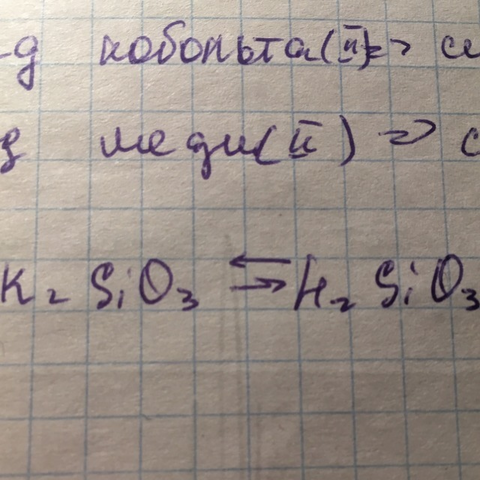 -д кобольта(II)=> си
д меди(II) => с
K₂SiO₃ ⇆ H₂SiO₃